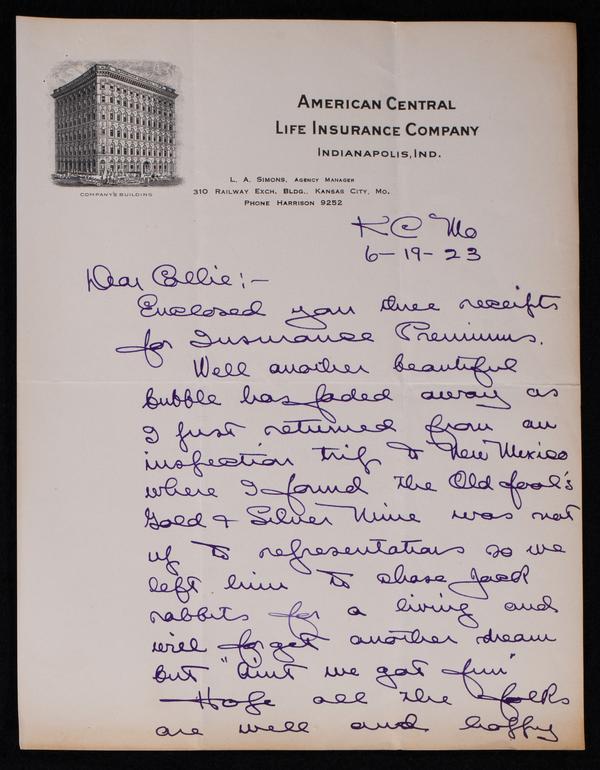 AMERICAN CENTRAL
LIFE INSURANCE COMPANY
INDIANAPOLIS, IND.
L. A. SIMONS, AGENCY MANAGER
310 RAILWAY EXCH. BLDG., KANSAS CITY, MO.
PHONE HARRISON 9252
COMPANY'S BUILDING
K C Mo
6-19-23
Dear Collie:-
Enclosed you three receipts
for Insurance Premiums.
Well another beautiful
bubble has faded away as
I just returned from an
inspection trip to New Mexico
where I found the Old fool's
Gold & Silver Mine was not
up to representations so we
left him to chase Jack
rabbits for a living and
will forget another dream
but "Aint we got fun"
Hope all the folks
are well and happy